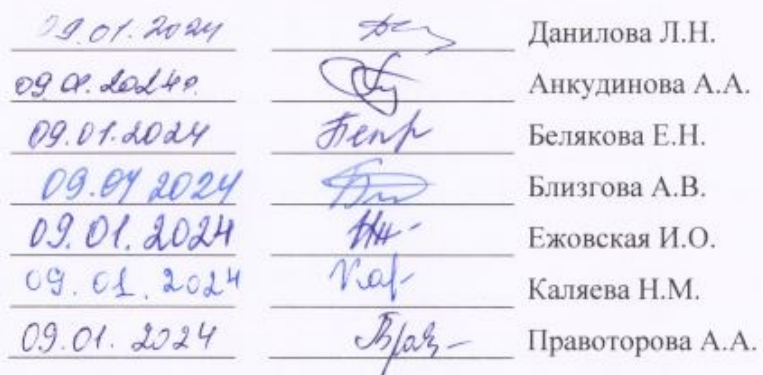 09.01.2024 Данилова Л.Н.
09.01.2024г. Анкудинова А.А.
09.01.2024 Белякова Е.Н.
09.01.2024 Близгова А.В.
09.01.2024 Ежовская И.О.
09.01.2024 Каляева Н.М.
09.01.2024 Правоторова А.А.